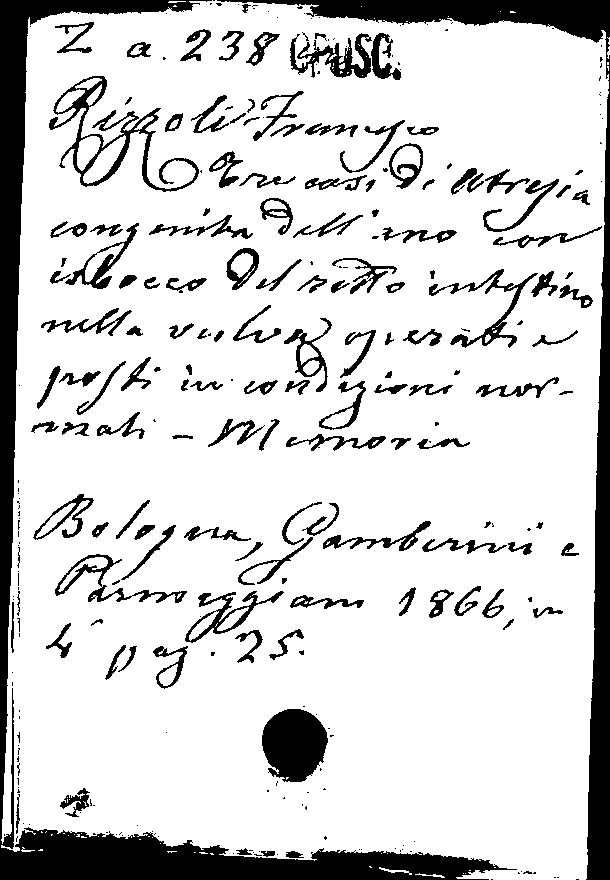 Z a. 238 OPUSC.
Rizzoli Francesco
Tre casi di Atresia
congenita dell'ano con
isbocco del retto intestino
nella vulva operati e
posti in condizioni nor-
mali - Memoria
Bologna, Gamberini e
Parmeggiani 1866, in
4° pag. 25.